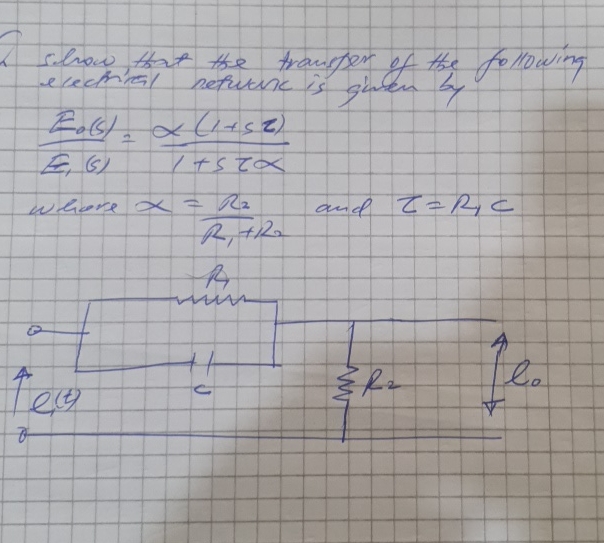 show that the transfer of the following
electrical network is given by
Eo(s) = α (1+sτ)
Ei(s) 1+sτα
where α = R2 and τ = R1 C
R1+R2
R1
C
ei(t)
R2
eo